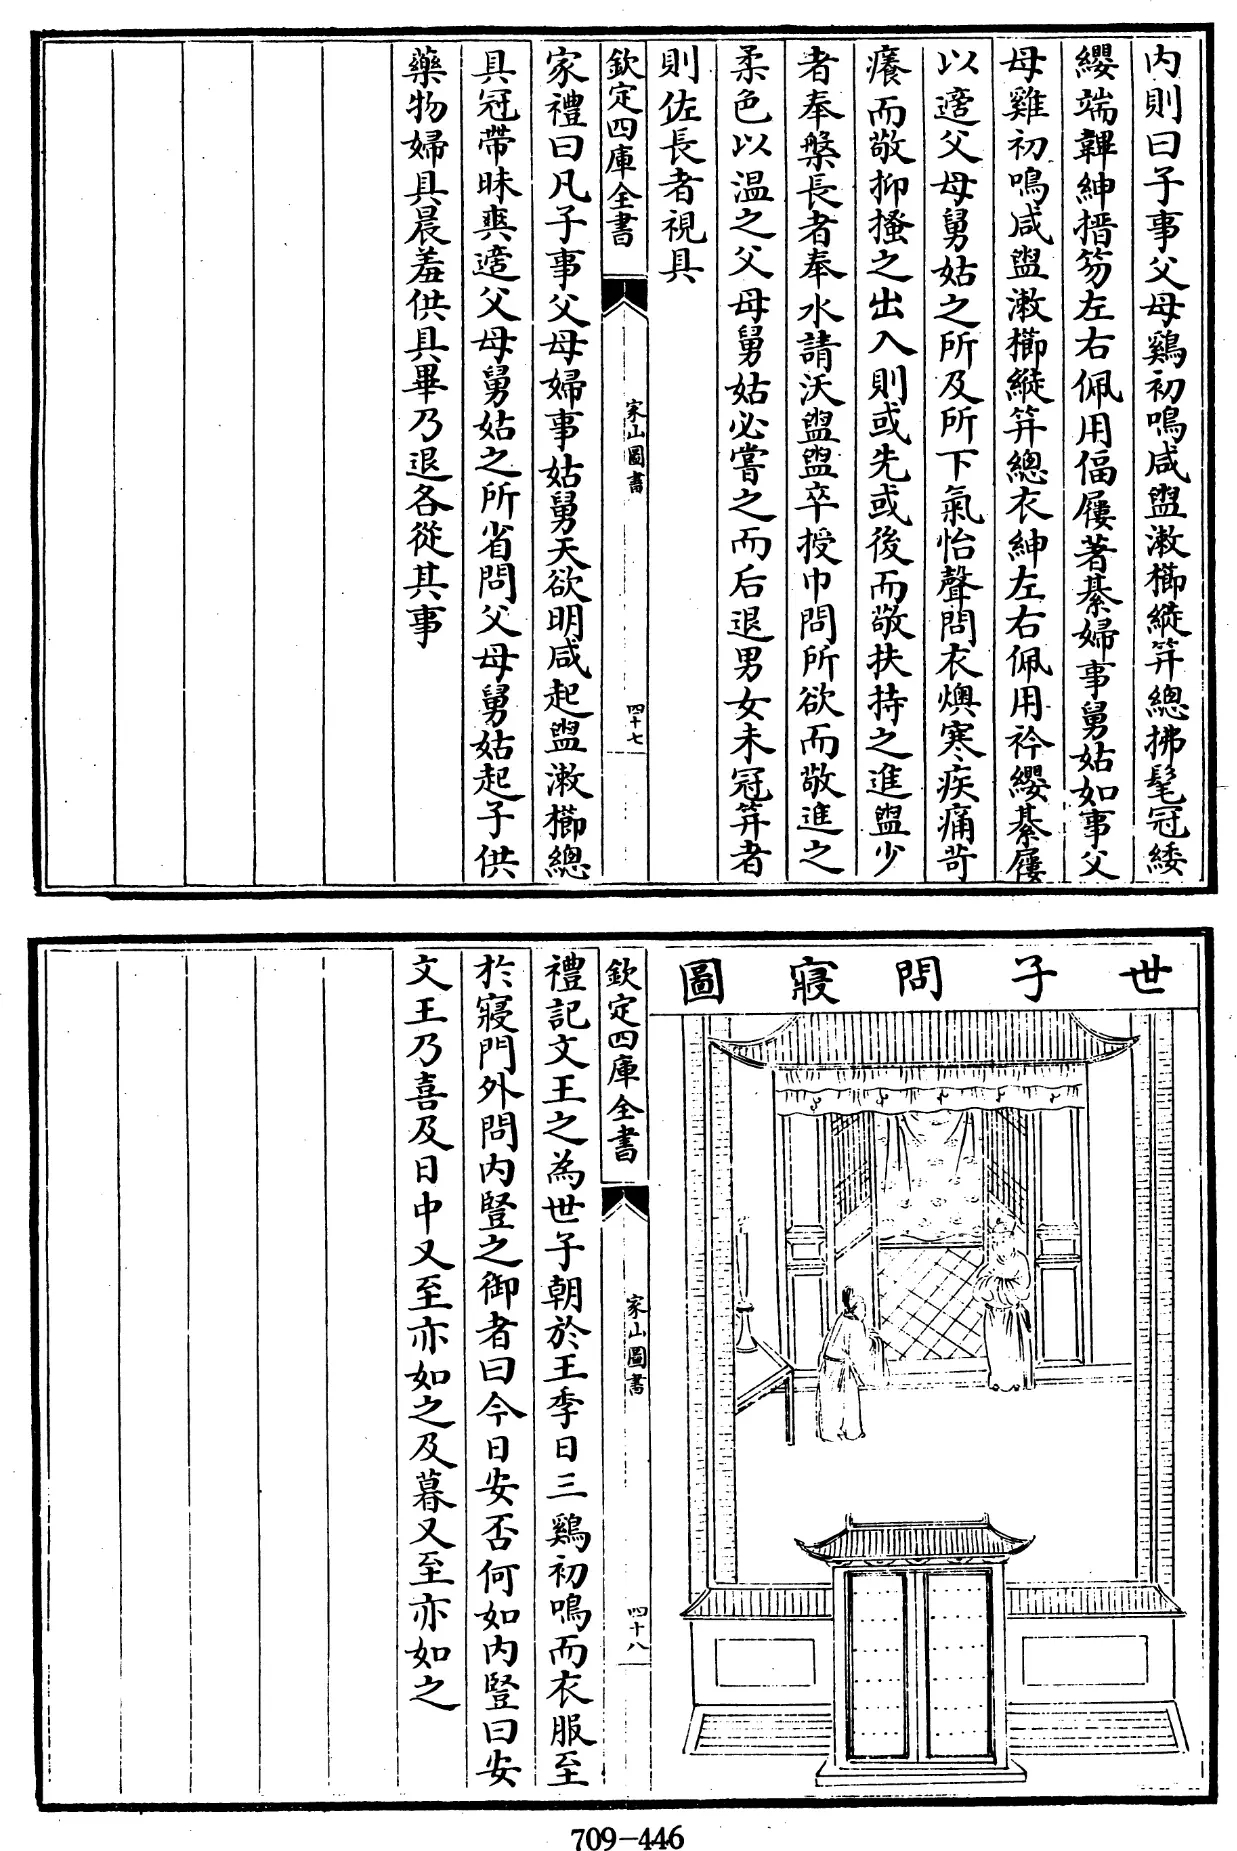 内則曰子事父母鷄初鳴咸盥漱櫛縰笄總拂髦冠緌
纓端韠紳搢笏左右佩用偪屨著綦婦事舅姑如事父
母雞初鳴咸盥漱櫛縰笄總衣紳左右佩用衿纓綦屨
以適父母舅姑之所及所下氣怡聲問衣燠寒疾痛苛
癢而敬抑搔之出入則或先或後而敬扶持之進盥少
者奉槃長者奉水請沃盥盥卒授巾問所欲而敬進之
柔色以温之父母舅姑必嘗之而后退男女未冠笄者
則佐長者視具
欽定四庫全書
家山圖書
四十七
家禮曰凡子事父母婦事姑舅天欲明咸起盥漱櫛總
具冠帶昧爽適父母舅姑之所省問父母舅姑起子供
藥物婦具晨羞供具畢乃退各從其事
世子問寢圖
欽定四庫全書
家山圖書
四十八
禮記文王之為世子朝於王季日三鷄初鳴而衣服至
於寢門外問内豎之御者曰今日安否何如内豎曰安
文王乃喜及日中又至亦如之及暮又至亦如之
709-446